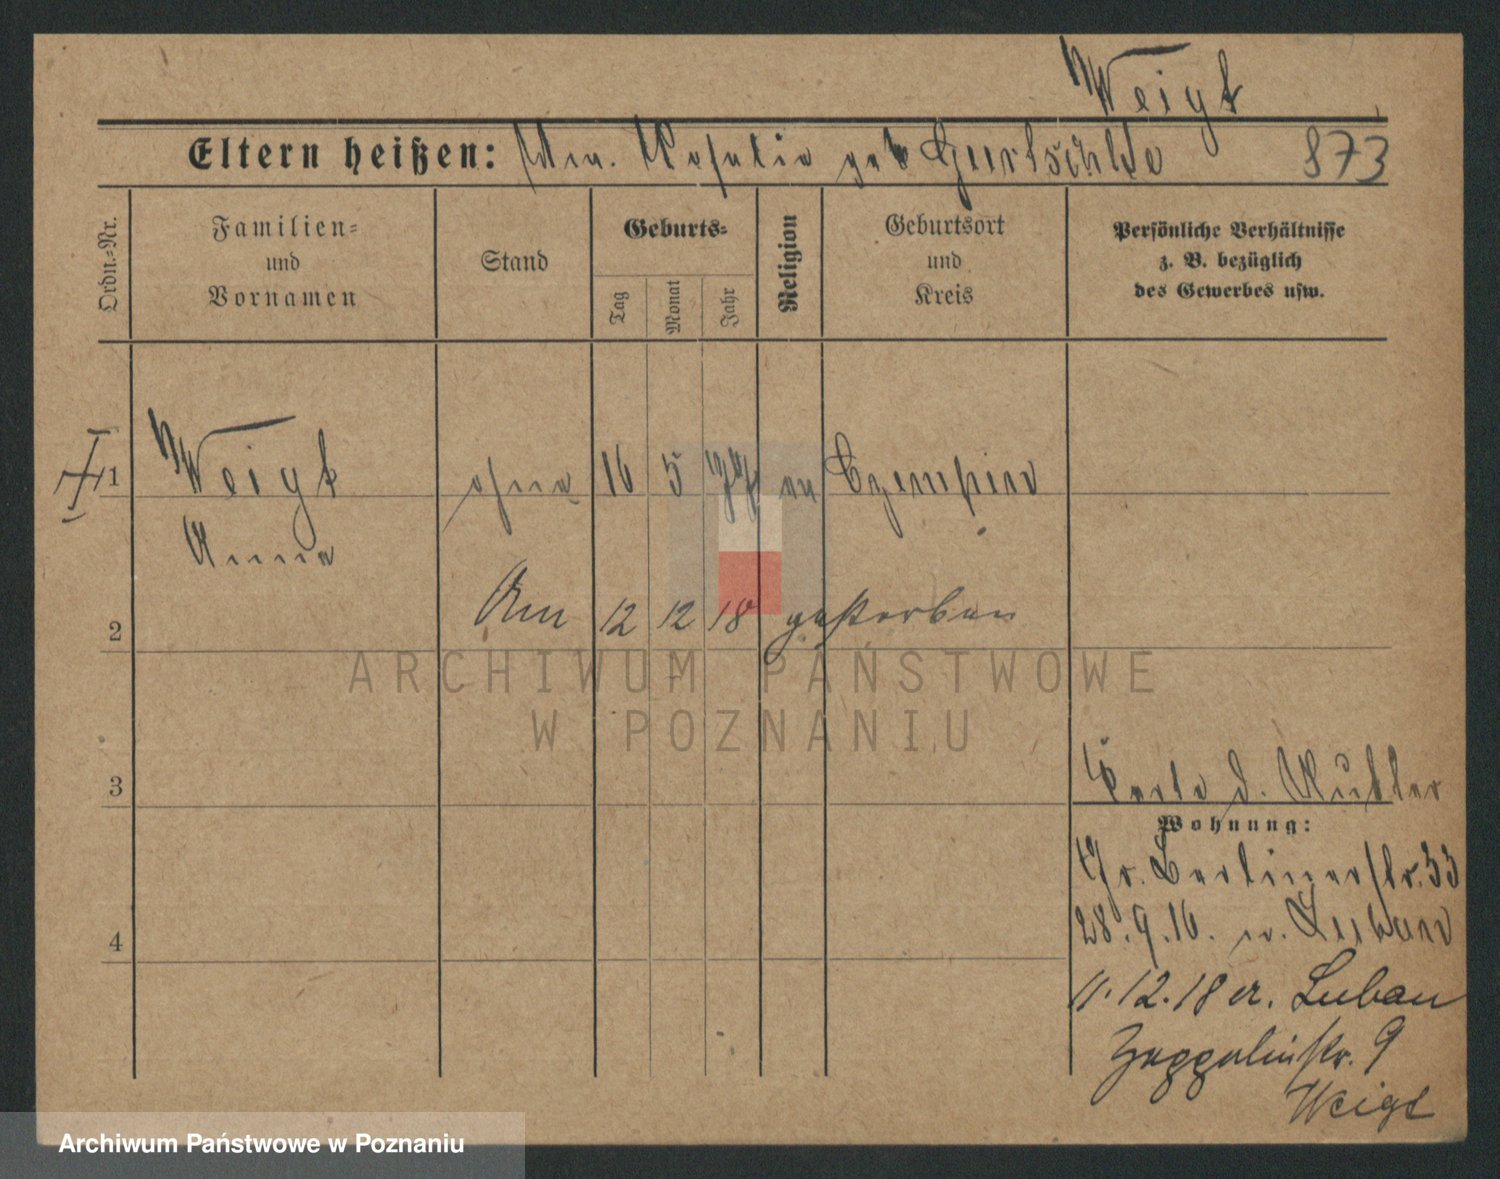 Weigt
Eltern heißen: Rosalie geb 873
Ordn.-Nr.
Familien-
und
Vornamen
Stand
Geburts-
Tag
Monat
Jahr
Religion
Geburtsort
und
Kreis
Persönliche Verhältnisse
z. B. bezüglich
des Gewerbes usw.
1 Weigt ohne 16 5 ev Czempin
Anna
2 Am 12 12 18 gestorben
ARCHIWUM PAŃSTWOWE
W POZNANIU
3
Wohnung:
Gr. Berlinerstr. 33
28.9.16. n. Luban
4
11.12.18 er. Luban
Zeppelinstr. 9
Weigt
Archiwum Państwowe w Poznaniu